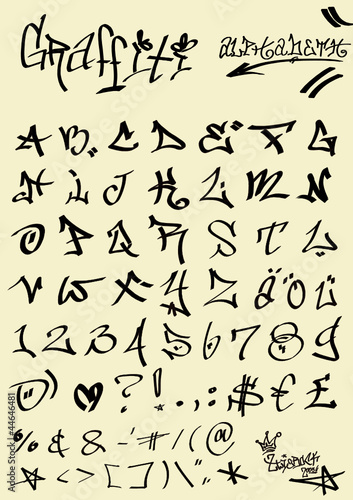 Graffiti
alphabeth
A B C D E F G
H i J K L M N
O P Q R S T U
V W X Y Z ä ö ü
1 2 3 4 5 6 7 8 9
0 ? ! . , : $ € £
% & - " # / ( @
< > [ ] \ ` " . *